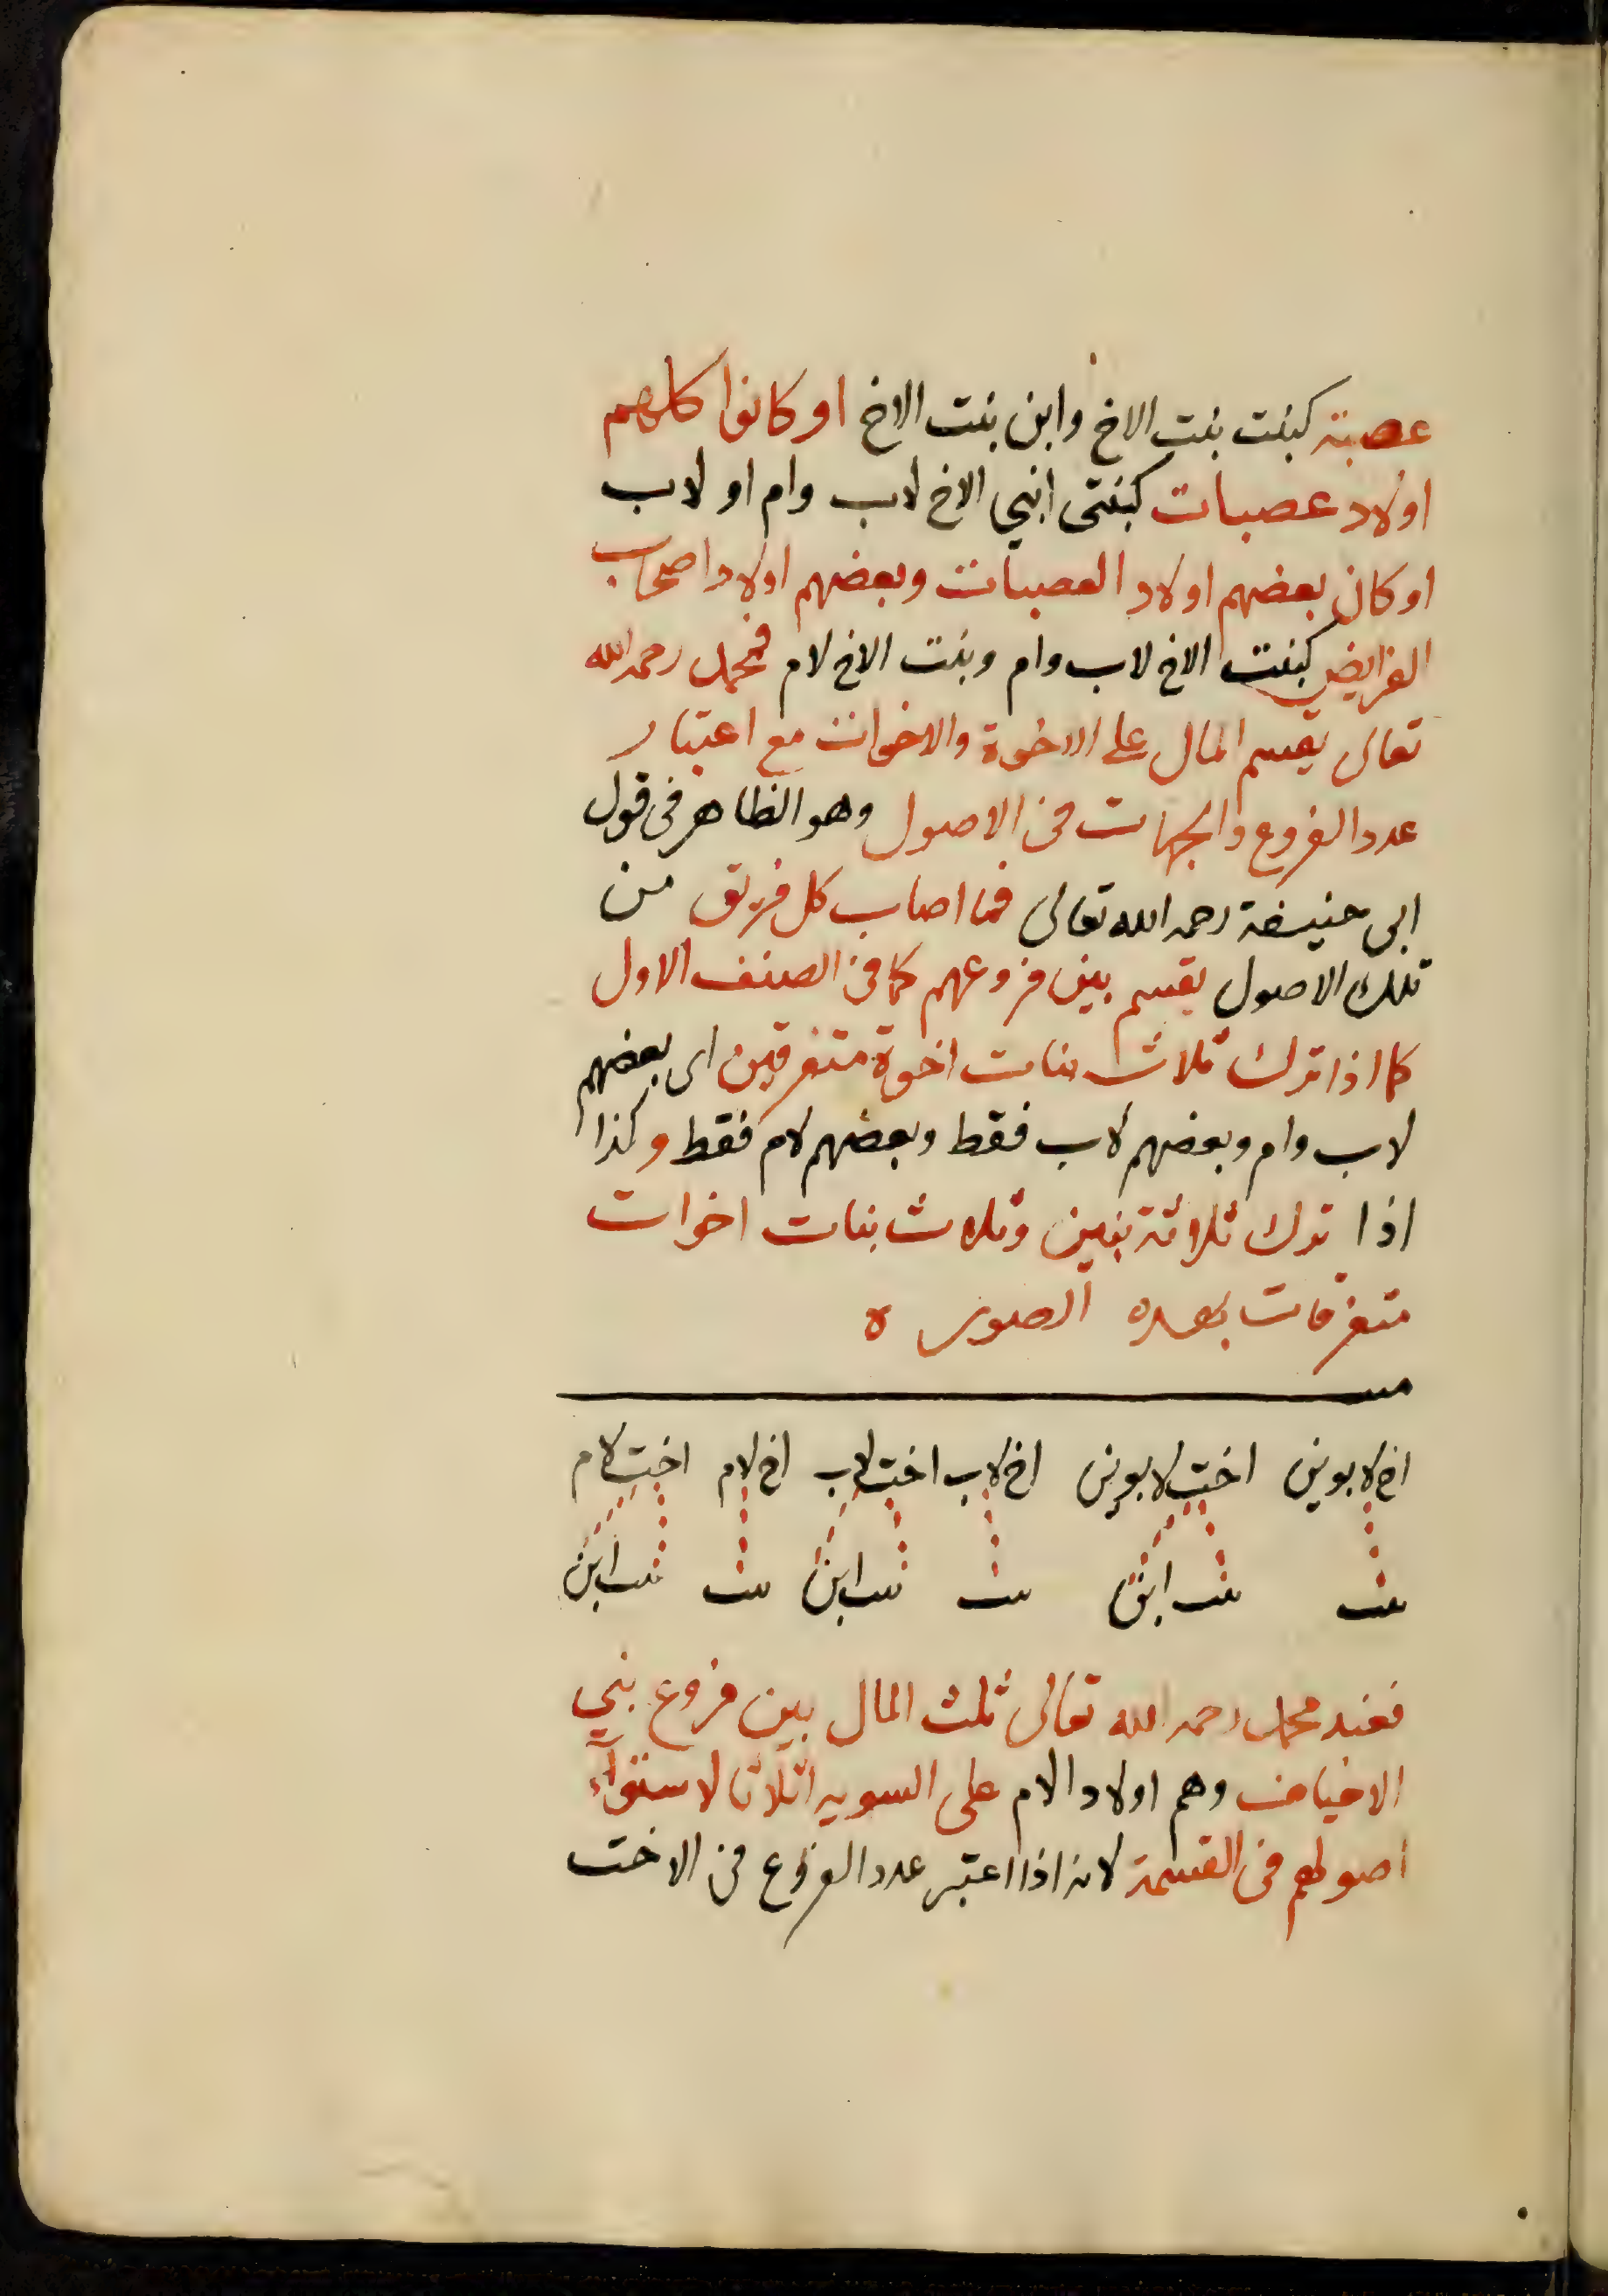 عصبة كبنت بنت الاخ وابن بنت الاخ او كانوا كلهم
اولاد عصبات كبنتى ابنى الاخ لاب وام او لاب
او كان بعضهم اولاد العصبات وبعضهم اولاد اصحاب
الفرايض كبنت الاخ لاب وام وبنت الاخ لام فمحمد رحمه الله
تعالى يقسم المال على الاخوة والاخوات مع اعتبار
عدد الفروع والجهات فى الاصول وهو الظاهر فى قول
ابى حنيفة رحمه الله تعالى فما اصاب كل فريق من
تلك الاصول يقسم بين فروعهم كما فى الصنف الاول
كما اذا ترك ثلاث بنات اخوة متفرقين اى بعضهم
لاب وام وبعضهم لاب فقط وبعضهم لام فقط وكذا
اذا ترك ثلاثة بنين وثلاث بنات اخوات
متفرقات بهذه الصور ه
مـــ
اخ لابوين اخت لابوين اخ لاب اخت لاب اخ لام اخت لام
بنت بنت ابن بنت بنت ابن بنت بنت ابن
فعند محمد رحمه الله تعالى ثلث المال بين فروع بنى
الاخياف وهم اولاد الام على السويه اثلاثا لاستوآء
اصولهم فى القسمة لانه اذا اعتبر عدد الفروع فى الاخت